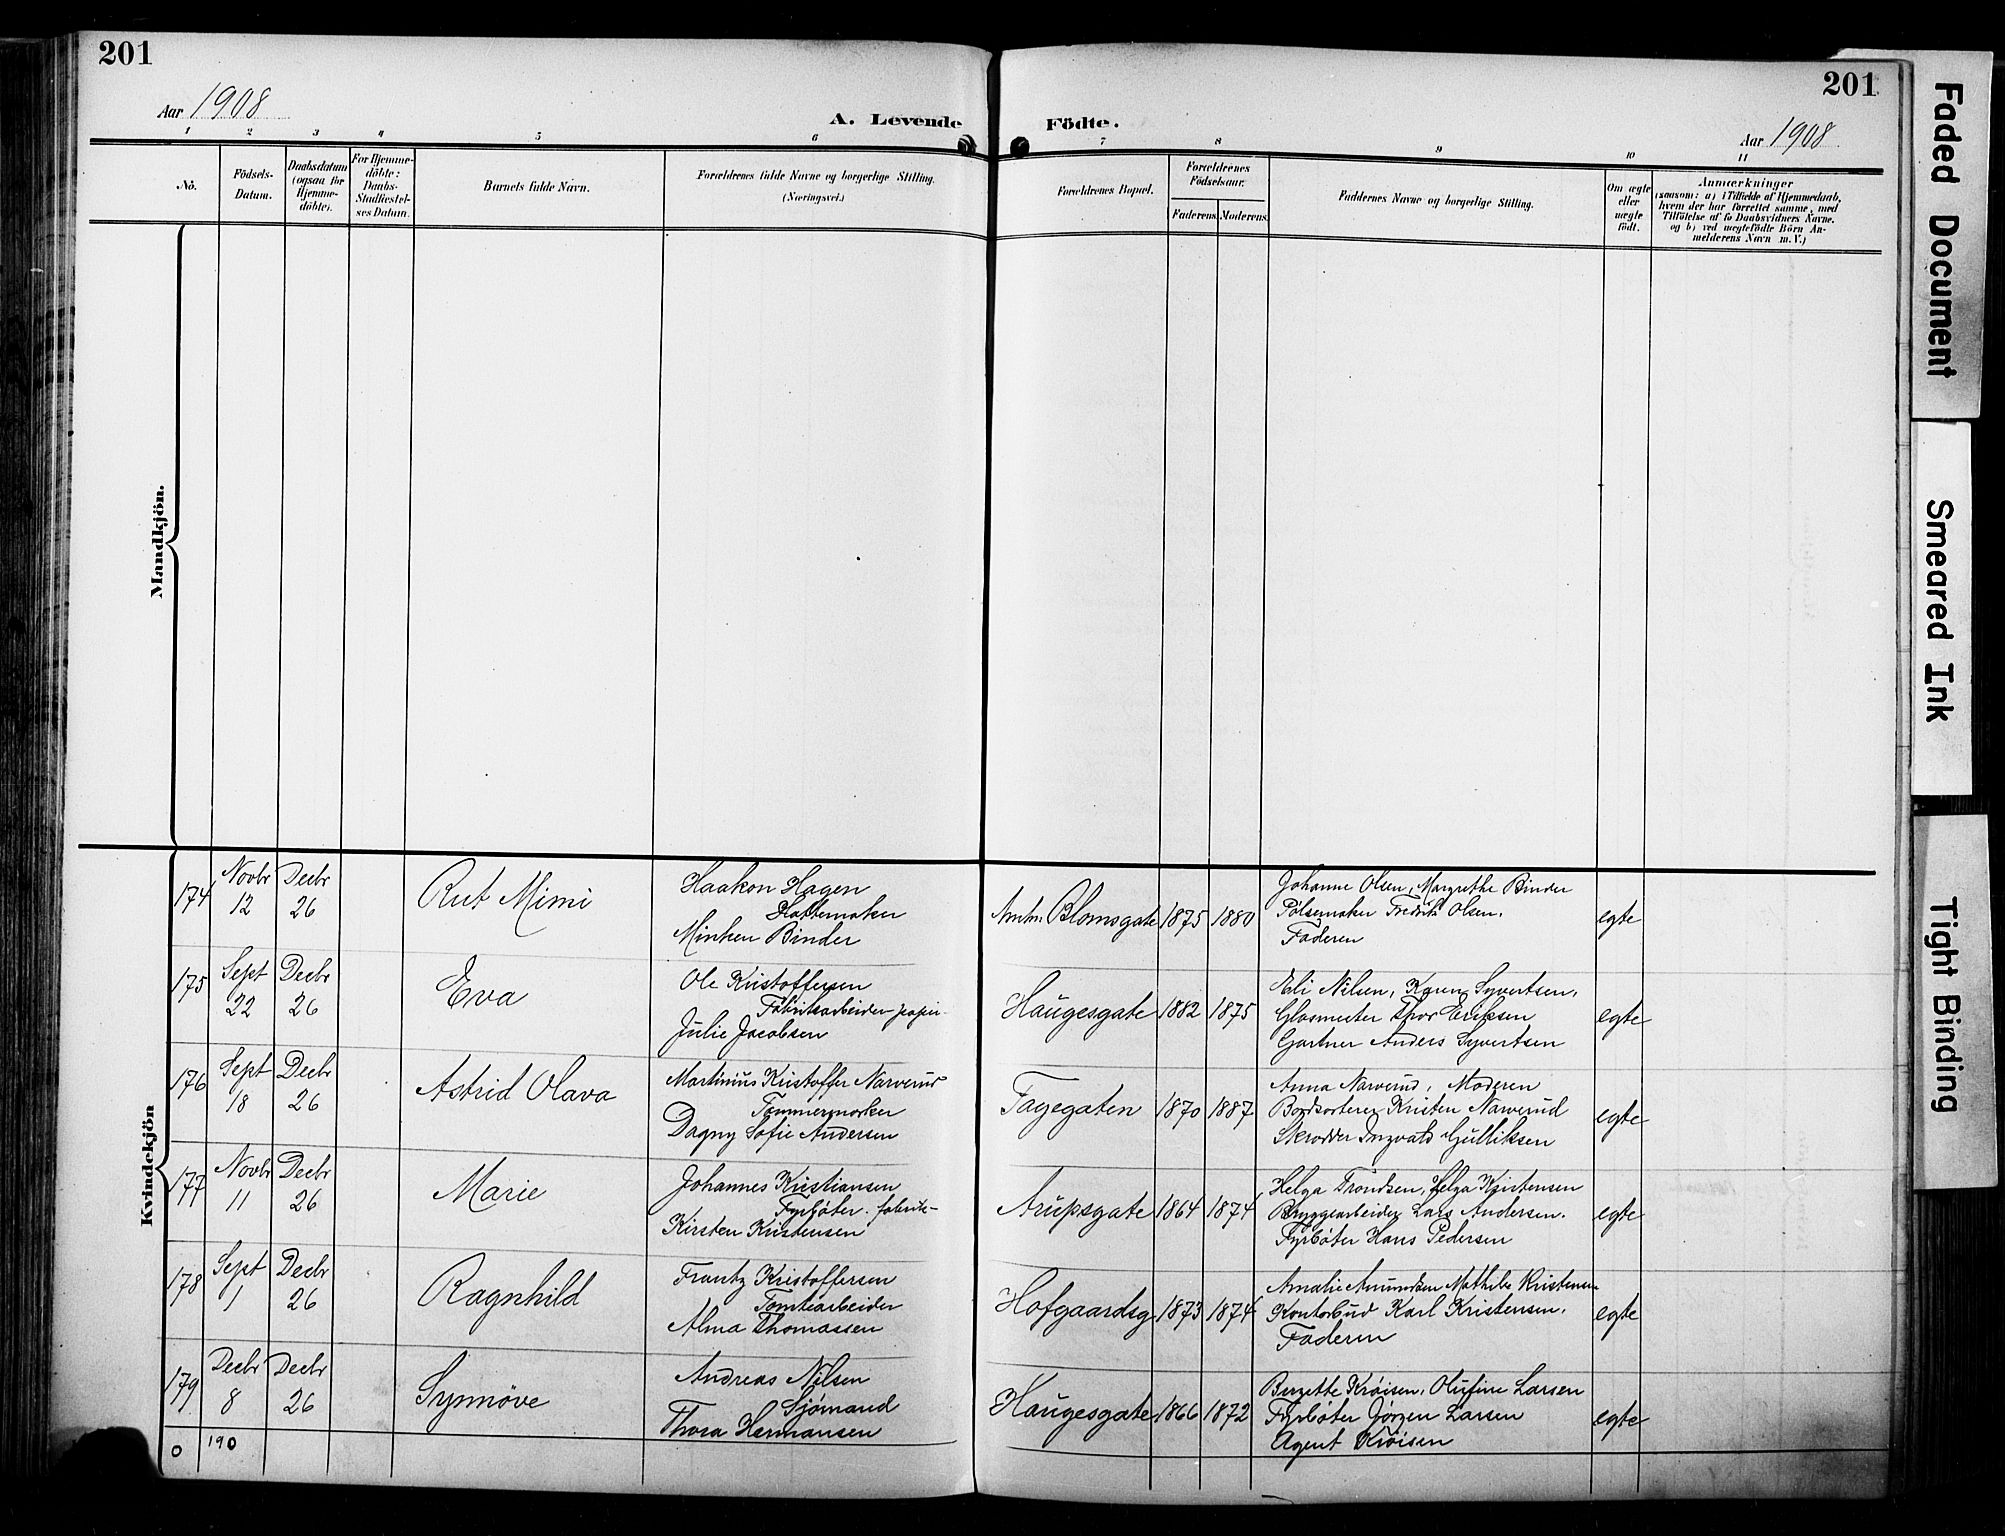 201
201
Aar 1908
A. Levende Födte.
Aar 1908
1 2 3 4 5 6 7 8 9 10 11
No.
Födsels-
Datum.
Daabsdatum
(ogsaa for
Hjemme-
döbte).
For Hjemme-
döbte:
Daabs-
Stadfæstel-
ses Datum.
Barnets fulde Navn.
Forældrenes fulde Navne og borgerlige Stilling.
(Næringsvei.)
Forældrenes Bopæl.
Forældrenes
Födselsaar.
Faderens. Moderens.
Faddernes Navne og borgerlige Stilling.
Om ægte
eller
uægte
födt.
Anmærkninger
(saasom: a) i Tilfælde af Hjemmedaab,
hvem der har forrettet samme, med
Tilföielse af to Daabsvidners Navne.
og b) ved uægtefödte Börn An-
melderens Navn m. V.)
Mandkjön.
Kvindekjön
174
Novbr
12
Decbr
26
Rut Mimi
Haakon Hagen
Hattemaker
Minken Binder
Amtm. Blomsgate
1875
1880
Johanne Olsen, Margrethe Binder
Pölsemaker Fredrik Olsen.
Faderen
egte
175
Sept
22
Decbr
26
Eva
Ole Kristoffersen
Fabrikarbeider papir-
Julie Jacobsen
Haugesgate
1882
1875
Eli Nilsen, Karen Syvertsen,
Glasmester Thor Eriksen
Gartner Anders Syvertsen
egte
176
Sept
18
Decbr
26
Astrid Olava
Martinius Kristoffer Narverud
Tømmermerker
Dagny Sofie Andersen
Tagegaten
1870
1887
Anna Narverud, Moderen
Bordsorterer Kristen Narverud
Skrædder Ingvald Gulliksen
egte
177
Novbr
11
Decbr
26
Marie
Johannes Kristiansen
Fyrbøter fabrik-
Kirsten Kristensen
Arupsgate
1864
1874
Helga Trondsen, Helga Kristensen
Bryggearbeider Lars Andersen.
Fyrbøter Hans Pedersen
egte
178
Sept
1
Decbr
26
Ragnhild
Frantz Kristoffersen
Tomtearbeider
Alma Thomassen
Hofgaardsg
1873
1874
Amalie Amundsen Mathilde Kristensen
Kontorbud Karl Kristensen.
Faderen
egte
179
Decbr
8
Decbr
26
Synnøve
Andreas Nilsen
Sjømand
Thora Hermansen
Haugesgate
1866
1872
Berzette Krøisen, Olufine Larsen
Fyrbøter Jørgen Larsen
Agent Krøisen
egte
0
190
Faded Document
Smeared Ink
Tight Binding